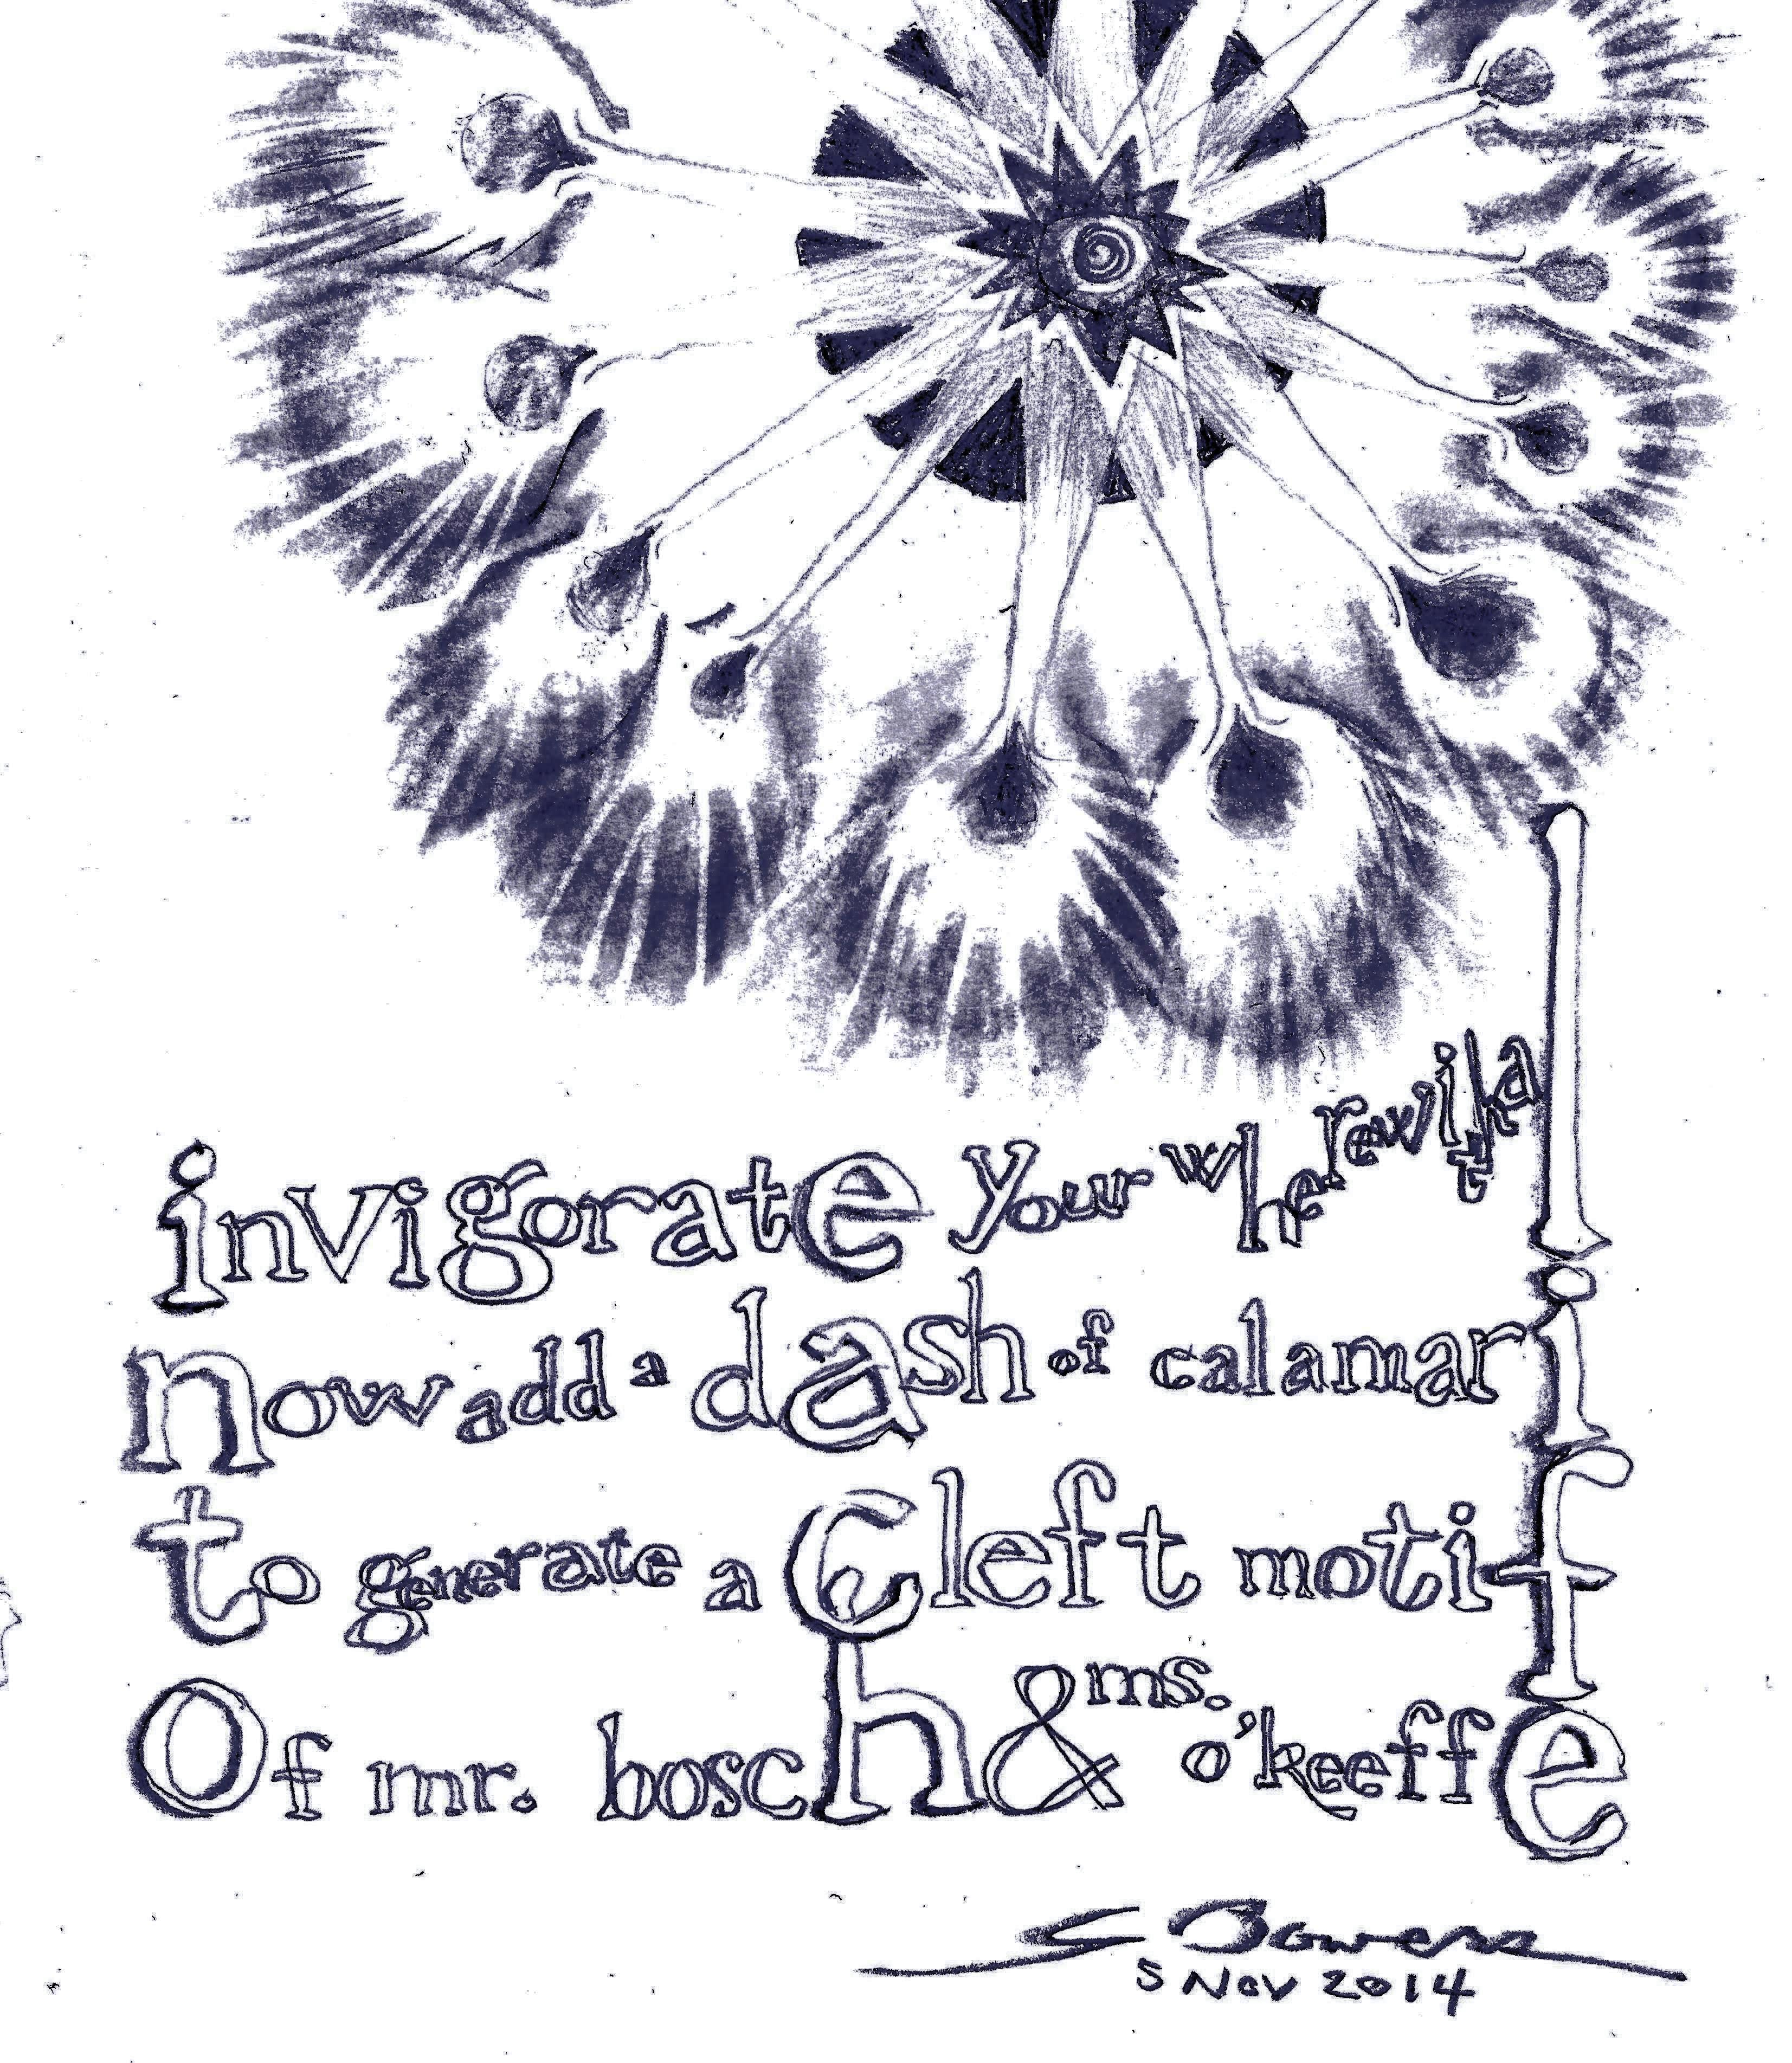 invigorate your wherewithal
now add a dash of calamari
to generate a cleft motif
Of mr. bosch & ms. o'keeffe
Bowers
5 Nov 2014